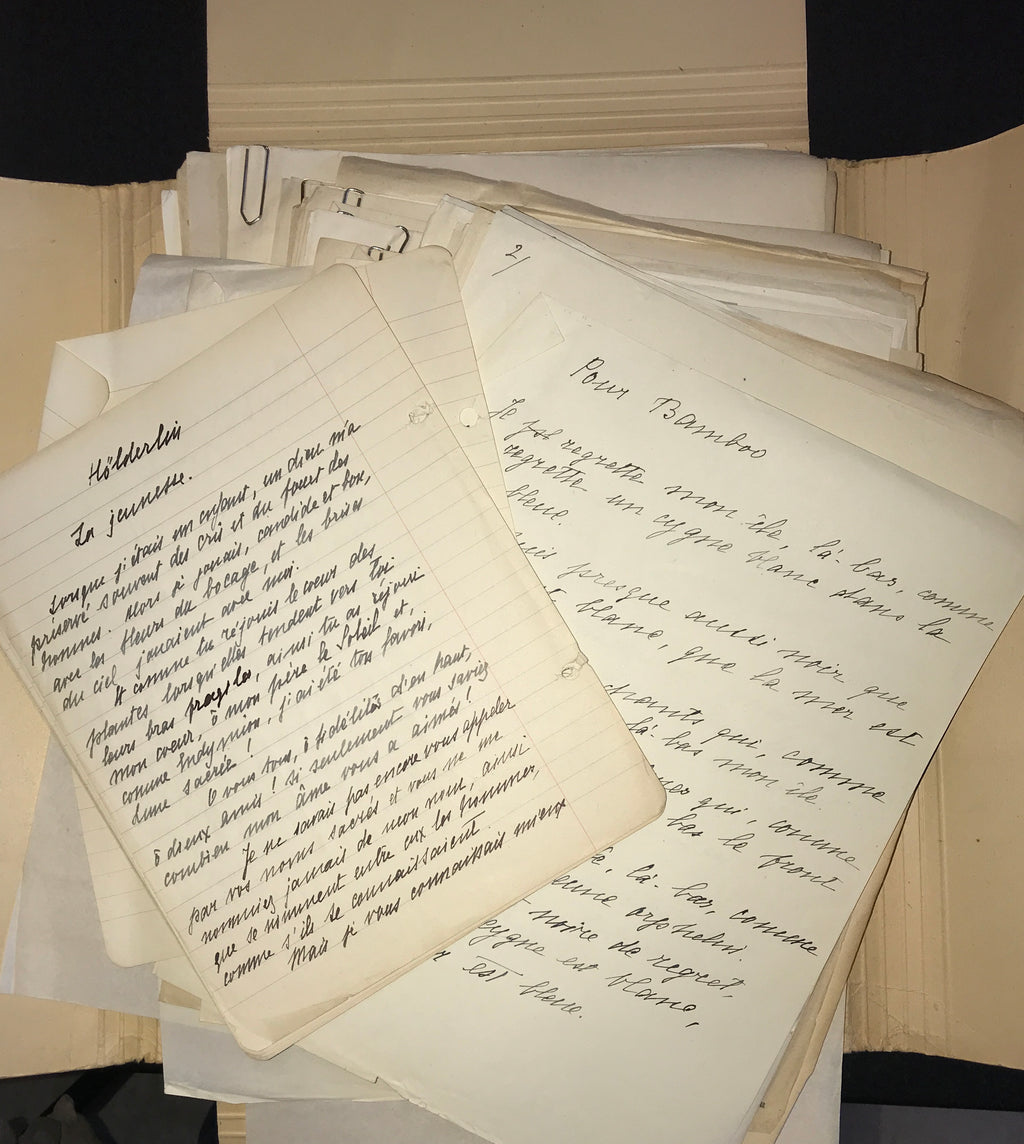 Hölderlin
La jeunesse.
Lorsque j'étais un enfant, un dieu m'a
préservé souvent des cris et du fouet des
hommes. Alors je jouais, candide et bon,
avec les fleurs du bocage, et les brises
du ciel jouaient avec moi.
Et comme tu réjouis le coeur des
plantes lorsqu'elles tendent vers toi
leurs bras fragiles, ainsi tu as réjoui
mon coeur, ô mon père le Soleil et,
comme Endymion, j'ai été ton favori,
Lune sacrée !
O vous tous, ô fidélités d'en haut,
ô dieux amis ! Si seulement vous saviez
combien mon âme vous a aimés !
Je ne savais pas encore vous appeler
par vos noms sacrés et vous ne me
nommiez jamais de mon nom, ainsi
que se nomment entre eux les hommes,
comme s'ils se connaissaient.
Mais je vous connaissais mieux
2/
Pour Bamboo
Je regrette mon île, là-bas, comme
regrette un cygne blanc dans la
bleue.
suis presque aussi noir que
blanc, que la mer est
chants qui, comme
là-bas mon île
qui, comme
bas le front
là-bas, comme
jeune orphelin.
noire de regret,
cygne est blanc,
est bleue.